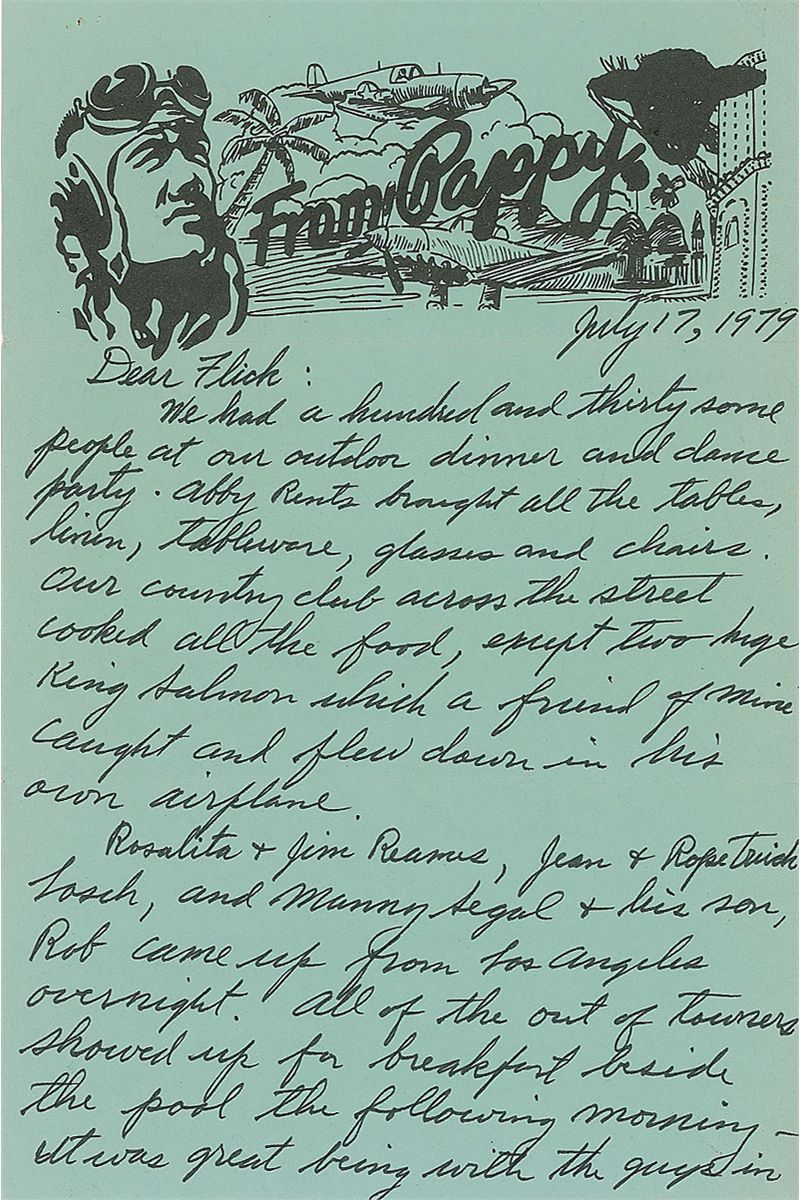 From Pappy
July 17, 1979
Dear Flick:
We had a hundred and thirty some
people at our outdoor dinner and dance
party. Abby Rents brought all the tables,
linen, tableware, glasses and chairs.
Our country club across the street
cooked all the food, except two huge
King Salmon which a friend of mine
caught and flew down in his
own airplane.
Rosalita & Jim Reames, Jean & Rope Trick
Losch, and Manny Segal & his son,
Rob came up from Los Angeles
overnight. All of the out of towners
showed up for breakfast beside
the pool the following morning -
It was great being with the guys in